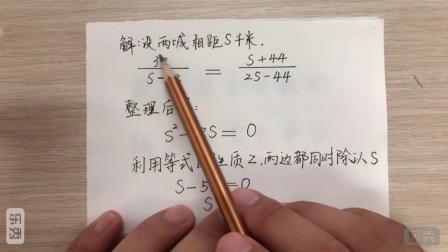 解:设两城相距S千米.
S+44
S- = 2S-44
整理后 :
S² - S = 0
利用等式 性质2,两边都同时除以S
S-5 =0
S
乐秀